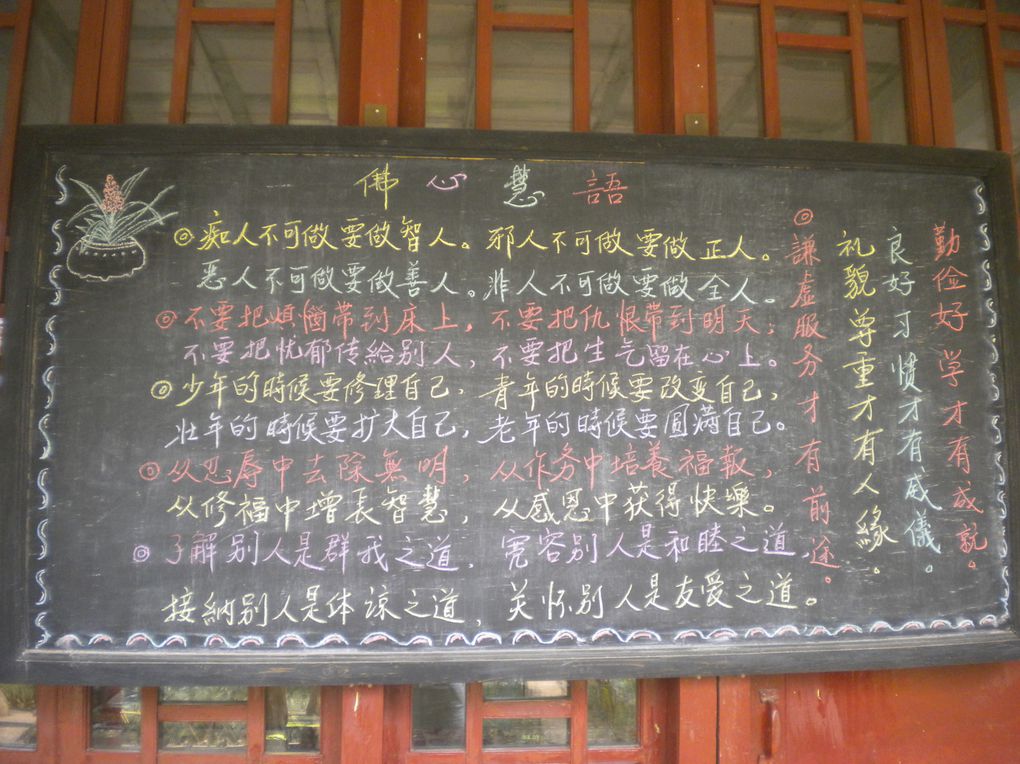 佛心慧語
◎痴人不可做要做智人。邪人不可做要做正人。
恶人不可做要做善人。非人不可做要做全人。
◎不要把烦惱带到床上，不要把仇恨带到明天，
不要把忧郁传給别人，不要把生气留在心上。
◎少年的時候要修理自己，青年的時候要改变自己，
壮年的時候要扩大自己，老年的時候要圓满自己。
◎从忍辱中去除無明，从作务中培養福報，
从修福中增長智慧，从感恩中获得快樂。
◎了解别人是群我之道，宽容别人是和睦之道，
接納别人是体谅之道，关怀别人是友爱之道。
◎謙虚服务才有前途。
礼貌尊重才有人緣。
良好习惯才有威儀。
勤俭好学才有成就。